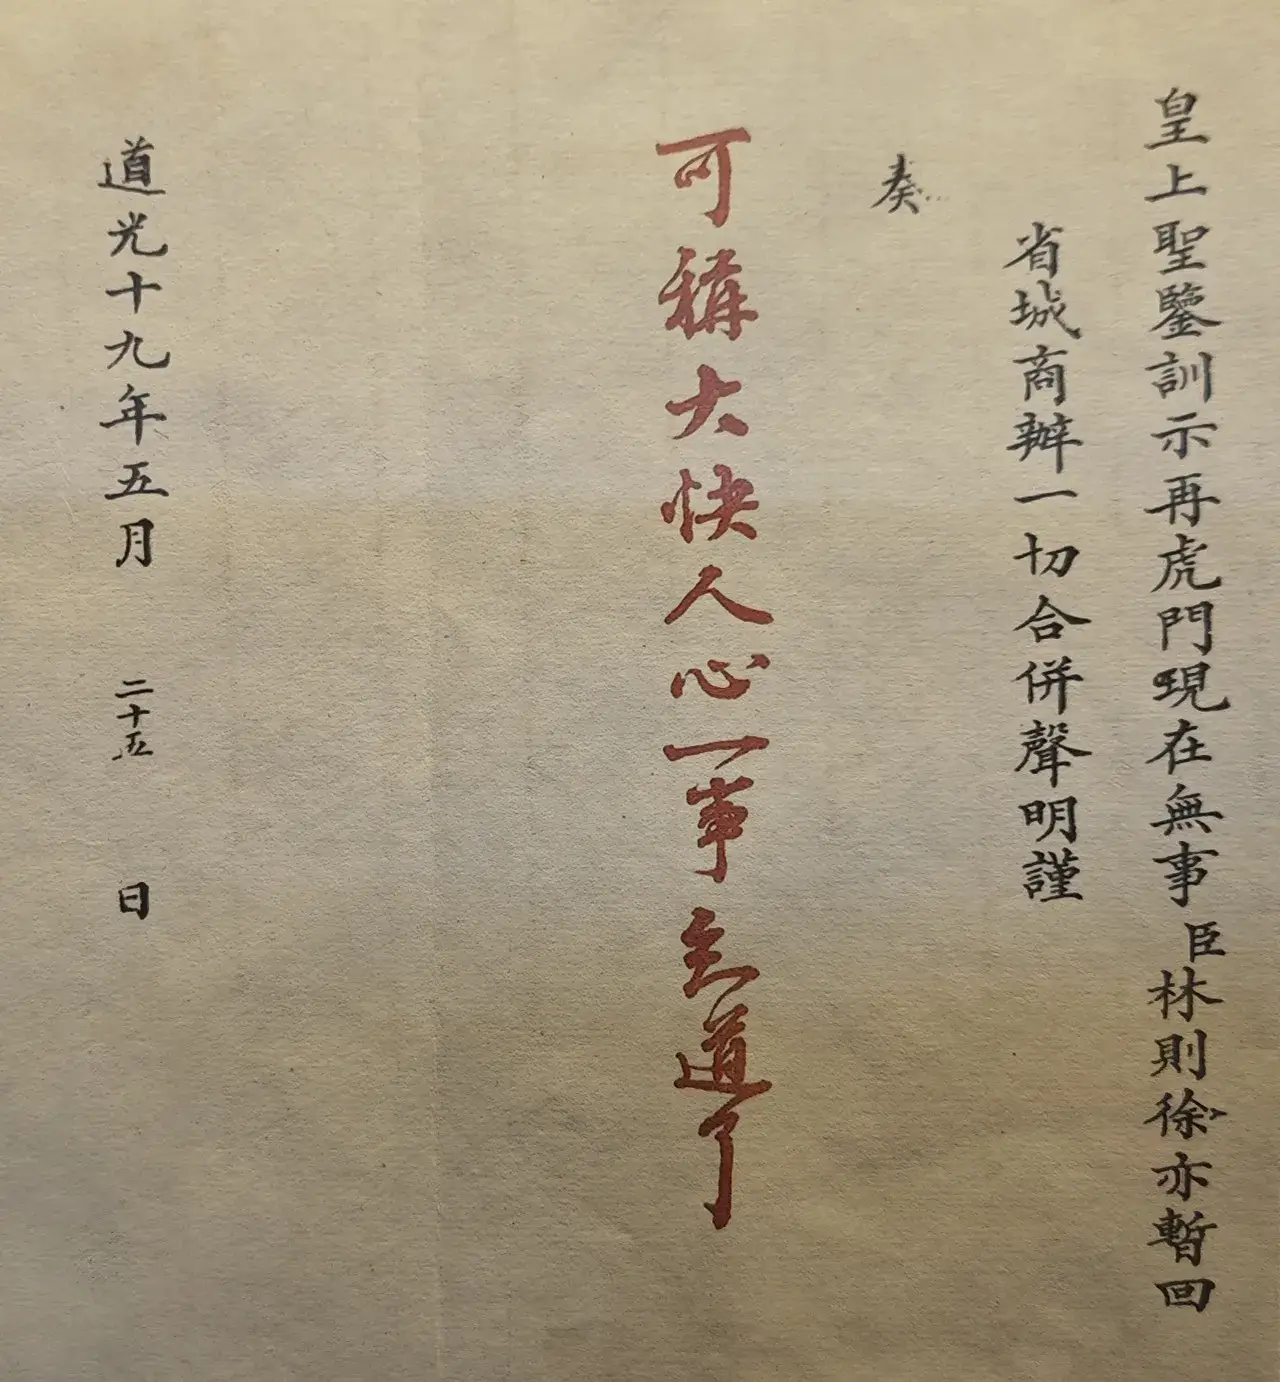 皇上聖鑒訓示再虎門現在無事臣林則徐亦暫回
省城商辦一切合併聲明謹
奏
可稱大快人心一事知道了
道光十九年五月 二十五 日